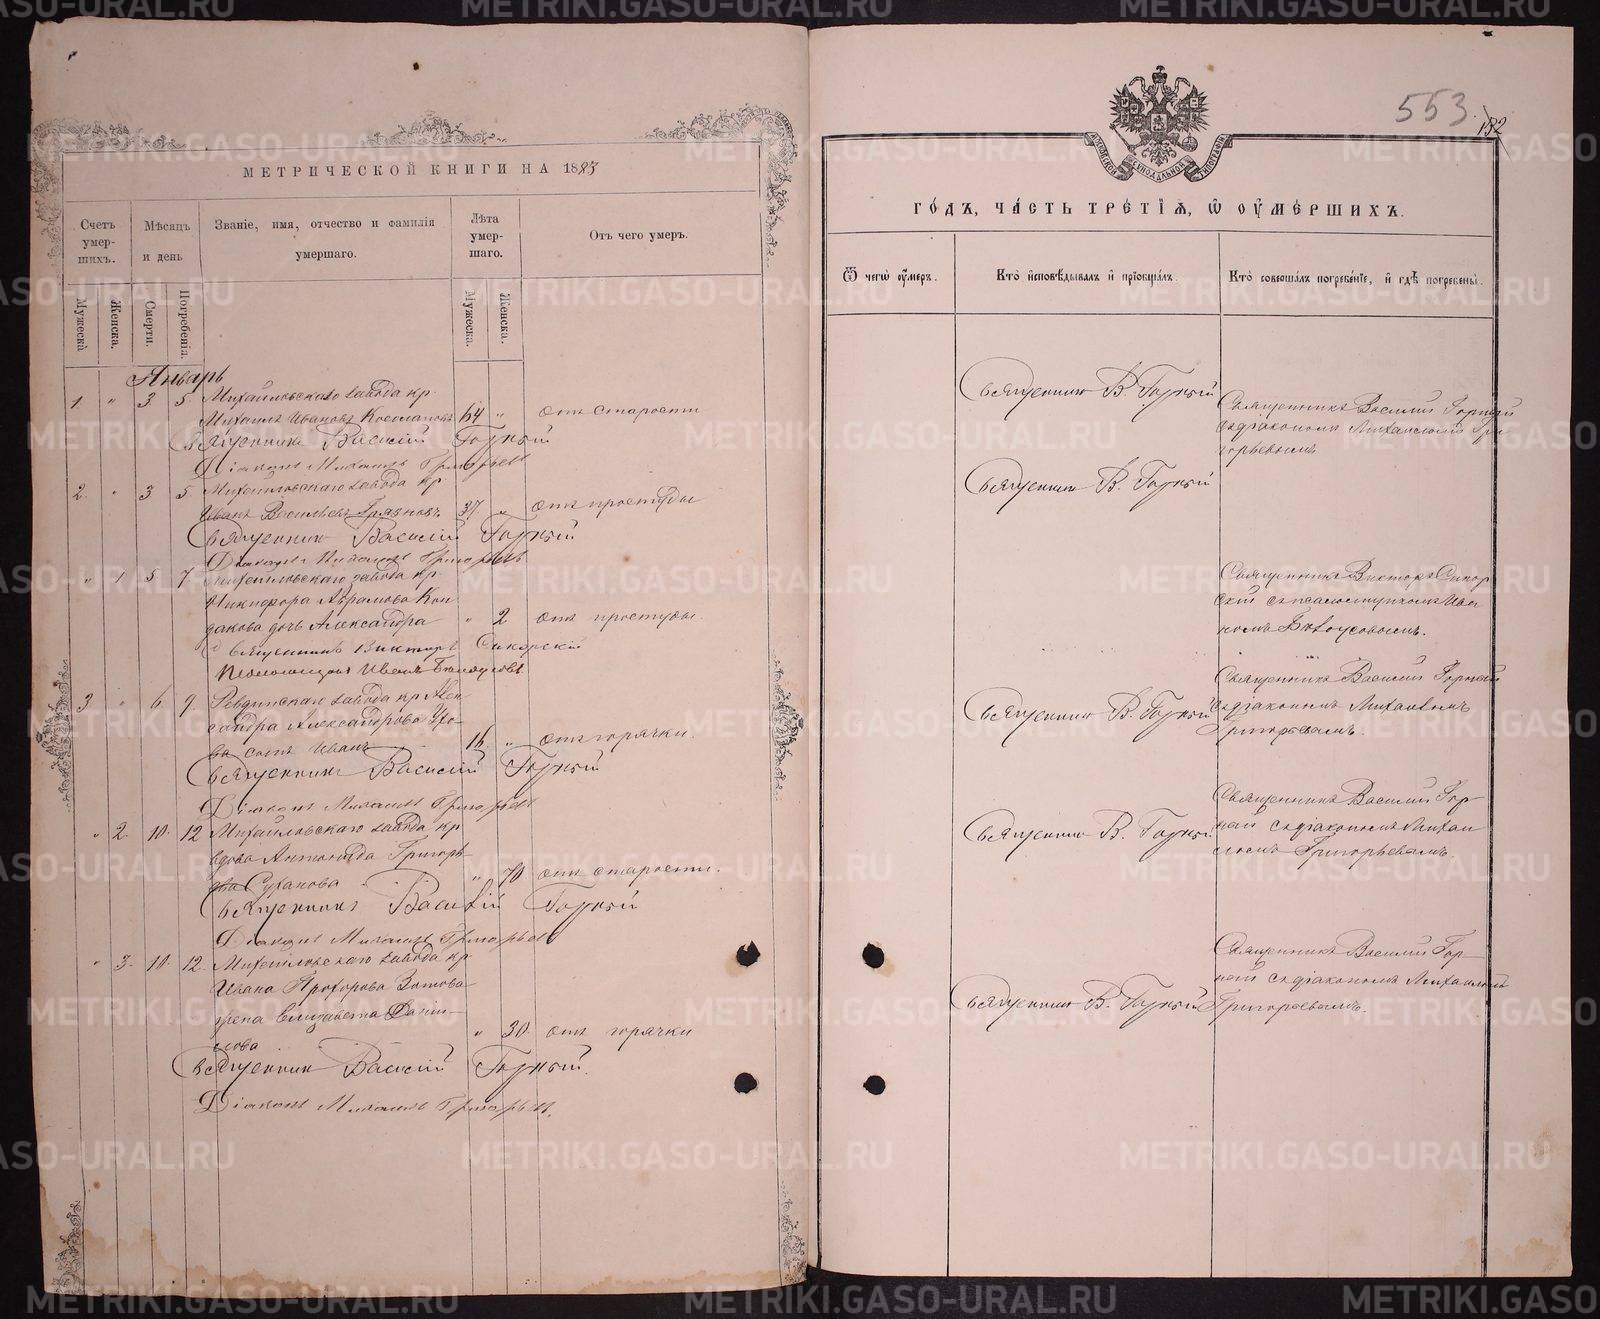 МЕТРИЧЕСКОЙ КНИГИ НА 1883
Счетъ умер-шихъ.
Мѣсяцъ и день
Званіе, имя, отчество и фамилія умершаго.
Лѣта умер-шаго.
Отъ чего умеръ.
Мужеска
Женска.
Смерти.
Погребенія.
Мужеска.
Женска.
Январь
1. " 3 5. Михайловскаго завода кр.
Михаилъ Ивановъ 64 " отъ старости
Священникъ Василій Горный
Діаконъ Михаилъ Григорьевъ
2. " 3 5. Михайловскаго завода кр.
Иванъ Васильевъ Грязновъ. 37. " отъ простуды
Священникъ Василій Горный
Діаконъ Михаилъ Григорьевъ
" 1 5 7 Михайловскаго завода кр.
Никифора Абрамова Кон-
дакова дочь Александра " 2 отъ простуды.
Священникъ Викторъ Сикорскій
Псаломщикъ Иванъ Бѣлоусовъ
3 " 6 9. Ревдинскаго завода кр. Алек
сандра Александрова
сынъ Иванъ 16. " отъ горячки.
Священникъ Василій Горный
Діаконъ Михаилъ Григорьевъ
" 2. 10. 12 Михайловскаго завода кр
вдова Антонида Григорь-
ева Суханова " 70 отъ старости.
Священникъ Василій Горный
Діаконъ Михаилъ Григорьевъ
" 3. 10. 12. Михайловскаго завода кр
Ивана Прохорова Зотова
жена Елизавета Дани-
лова " 30. отъ горячки
Священникъ Василій Горный.
Діаконъ Михаилъ Григорьевъ.
553
132
МОСКОВСКОЙ СѴНОДАЛЬНОЙ ТИПОГРАФІИ
ГО́ДЪ, ЧА́СТЬ ТРЕ́ТІѦ, Ѡ҆ ОУ҆МЕ́РШИХЪ.
Ѿ чегѡ̀ оу҆́меръ.
Кто̀ и҆сповѣ́дывалъ и҆ прїѡбща́лъ.
Кто̀ соверша́лъ погребе́нїе, и҆ гдѣ̀ погребены̀.
Священникъ В. Горный
Священникъ Василій Горный
съ діакономъ Михаиломъ Гри-
горьевымъ
Священникъ В. Горный
Священникъ Викторъ Сикор-
скій съ псаломщикомъ Ива-
номъ Бѣлоусовымъ.
Священникъ В. Горный
Священникъ Василій Горный
съ діакономъ Михаиломъ
Григорьевымъ.
Священникъ В. Горный
Священникъ Василій Гор-
ный съ діакономъ Михаи-
ломъ Григорьевымъ.
Священникъ В. Горный
Священникъ Василій Гор-
ный съ діакономъ Михаиломъ
Григорьевымъ.
METRIKI.GASO-URAL.RU